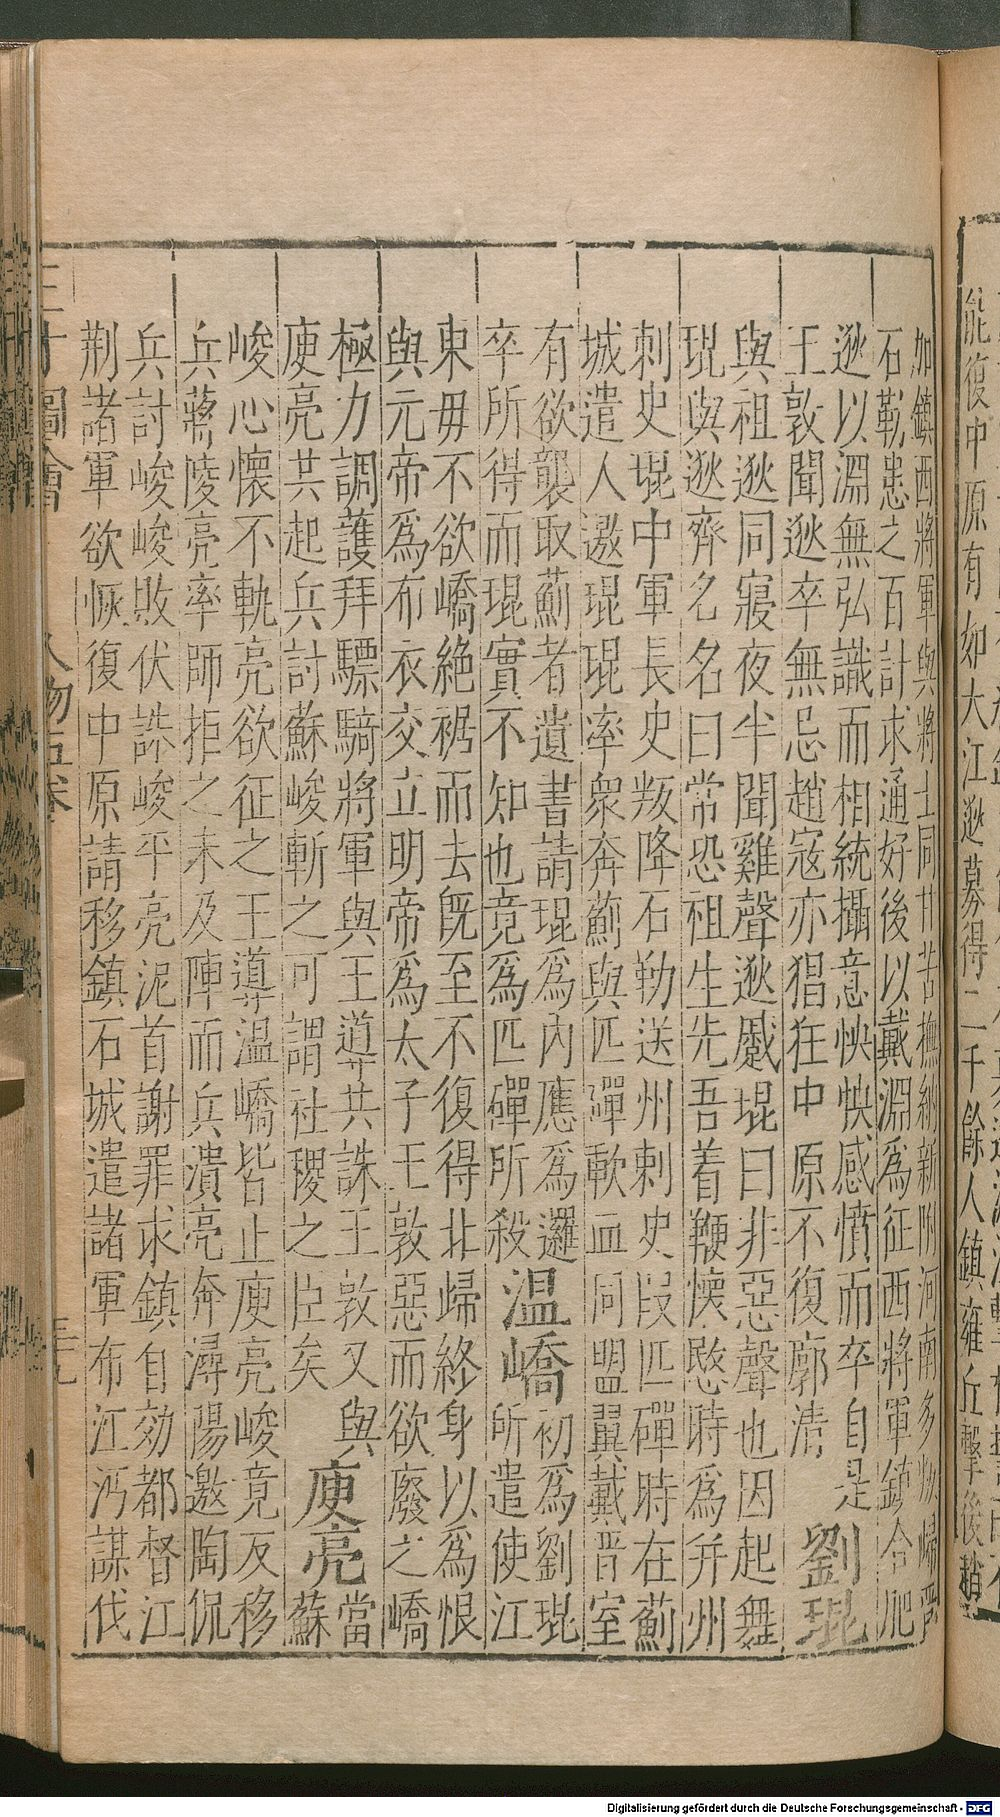 如鎮西將軍與將士同甘苦撫納新附河南多叛歸晉
石勒患之百計求通好後以戴淵爲征西將軍鎮合肥
逖以淵無弘識而相統攝意怏怏感憤而卒自是
王敦聞逖卒無忌趙寇亦猖狂中原不復廓清
劉琨
與祖逖同寢夜半聞雞聲逖蹴琨曰非惡聲也因起舞
琨與逖齊名名曰常恐祖生先吾着鞭懷愍時爲并州
刺史琨中軍長史叛降石勒送州刺史段匹磾時在薊
城遣人邀琨琨率衆奔薊與匹磾歃血同盟翼戴晉室
有欲襲取薊者遺書請琨爲內應爲邏
卒所得而琨實不知也竟爲匹磾所殺
溫嶠
初爲劉琨
所遣使江
東毋不欲嶠絶裾而去既至不復得北歸終身以爲恨
與元帝爲布衣交立明帝爲太子王敦惡而欲廢之嶠
極力調護拜驃騎將軍與王導共誅王敦又與
庾亮共起兵討蘇峻斬之可謂社稷之臣矣
庾亮
當
蘇
峻心懷不軌亮欲征之王導溫嶠皆止庾亮峻竟反移
兵蔣陵亮率師拒之未及陣而兵潰亮奔潯陽邀陶侃
兵討峻峻敗伏誅峻平亮泥首謝罪求鎮自効都督江
荆諸軍欲恢復中原請移鎮石城遣諸軍布江沔謀伐
三才圖會
人物五卷
三九
能復中原有如大江逖募得二千餘人鎮雍丘擊後趙